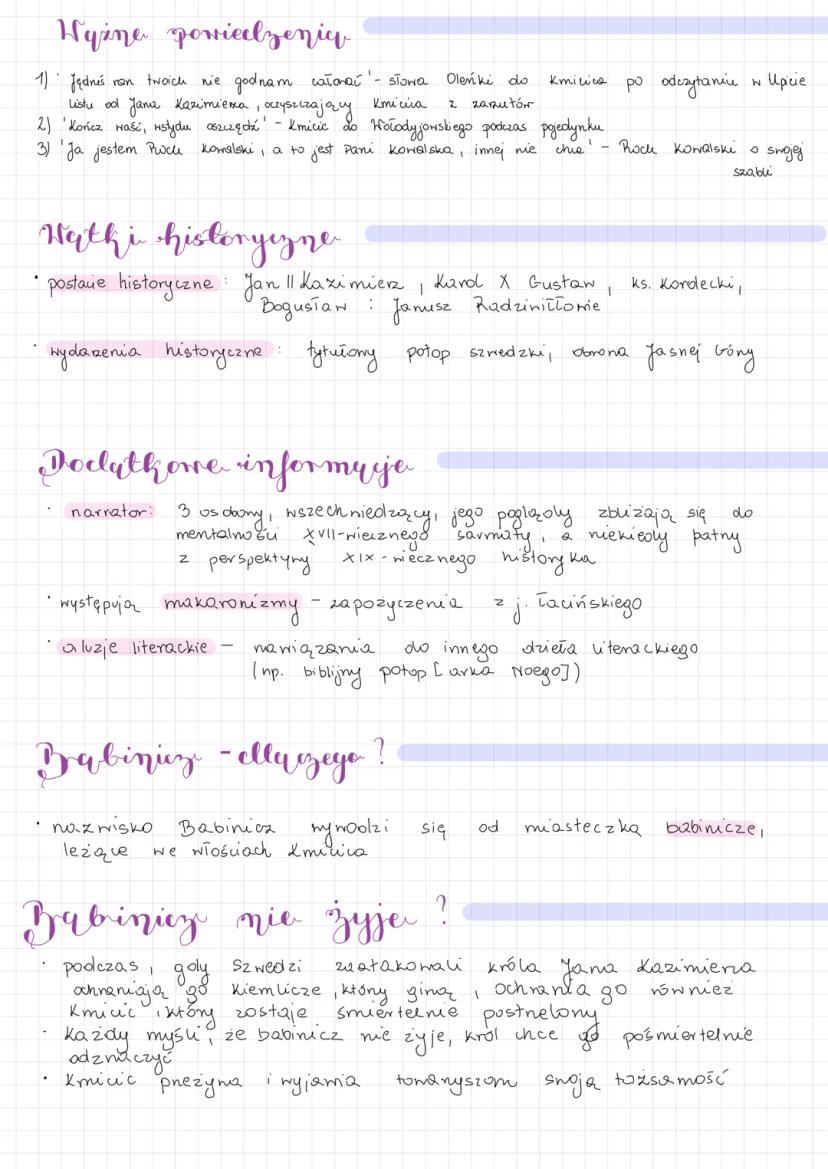 Ważne powiedzenia
1) 'Jędruś ran twoich nie godnam całować' - słowa Oleńki do Kmicica po odczytaniu w Upicie
listu od Jana Kazimierza, oczyszczający Kmicica z zarzutów
2) 'Kończ waść, wstydu oszczędź' - Kmicic do Wołodyjowskiego podczas pojedynku
3) 'Ja jestem Roch Kowalski, a to jest Pani Kowalska, innej nie chcę' - Roch Kowalski o swojej
szabli
Wątki historyczne
• postacie historyczne: Jan II Kazimierz, Karol X Gustaw, ks. Kordecki,
Bogusław i Janusz Radziwiłłowie
• wydarzenia historyczne: tytułowy potop szwedzki, obrona Jasnej Góry
Dodatkowe informacje
• narrator: 3 osobowy, wszechwiedzący, jego poglądy zbliżają się do
mentalności XVII-wiecznego sarmaty, a niekiedy patrzy
z perspektywy XIX-wiecznego historyka
• występują makaronizmy - zapożyczenia z j. łacińskiego
• aluzje literackie - nawiązania do innego dzieła literackiego
(np. biblijny potop [arka Noego])
Babinicz - dlaczego?
• nazwisko Babinicz wywodzi się od miasteczka babinicze,
leżące we włościach Kmicica
Babinicz nie żyje?
• podczas, gdy Szwedzi zaatakowali króla Jana Kazimierza
ochraniają go Kiemlicze, który giną, ochrania go również
Kmicic, który zostaje śmiertelnie postrzelony
• Każdy myśli, że babinicz nie żyje, król chce go pośmiertelnie
odznaczyć
• Kmicic przeżywa i wyjawia towarzyszom swoją tożsamość